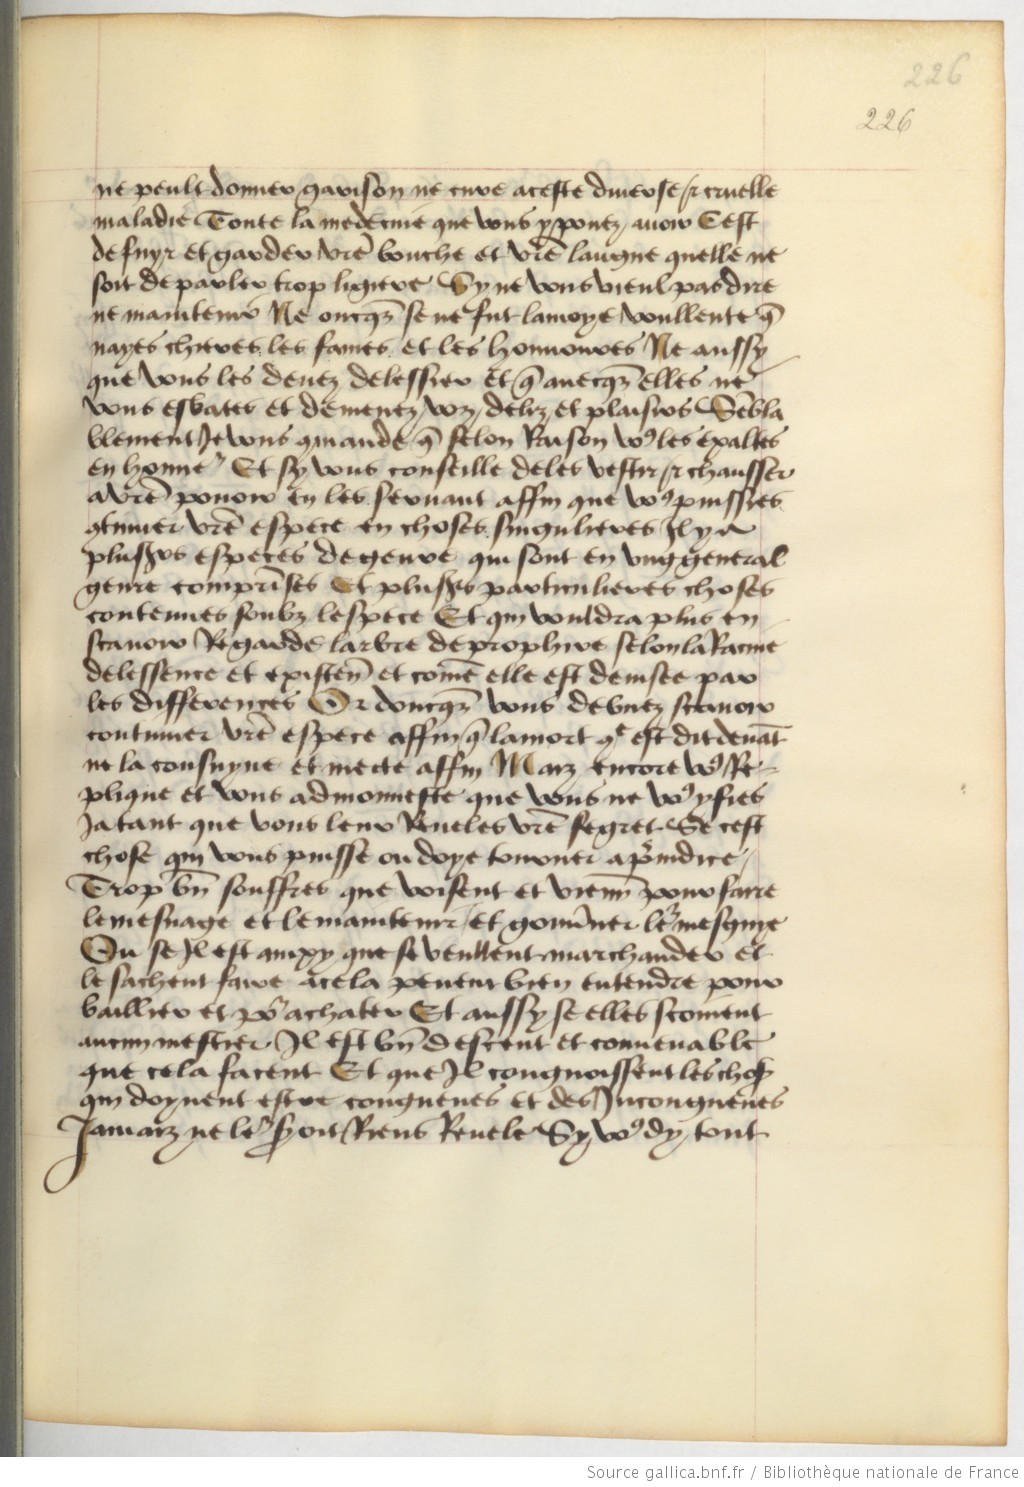 226
226
ne peult donner garison ne cure a ceste diverse & cruelle
maladie Toute la medecine que vous y povez avoir Cest
de fuyr et garder vr̄e bouche et vr̄e langue quelle ne
soit de parler trop ligiere Sy ne vous vieul pas dire
ne maintenir Ne oncq̄z se ne fut lamoye voullente q̄
nayes chieres les fames et les honnoures Ne aussy
que vous les devez delessier Et q̄ avecq̄z elles ne
vous esbates et demenez voz deliz et plaisirs Sēbla
blement Je vous 9mande q̄ selon Raison vo9 les exaltes
en honne' Et sy vous conseille de les vestir & chausser
a vr̄e povoir en les servant affin que vo9 puissies
9tinuer vr̄e espece en choses singulieres Il y a
plus's especes de genre qui sont en ung general
genre comprīses Et plus's particulieres choses
contenues soubz lespece Et qui vouldra plus en
scavoir Regarde larbre de prophire selon la Racine
delessence et existen̄ et com̄e elle est devisee par
les differences Or doncq̄z vous devuez scavoir
continuer vr̄e espece affin q̄ la mort 9e est dit devāt
ne la consuyve et mecte affin Maiz encore vo9 Re-
plique et vous admonneste que vous ne vo9 y fies
Ja tant que vous leur Reveles vr̄e segret Se cest
chose qui vous puisse ou doye tourner a p̄iudice
Trop bn̄ souffres que voisent et vien̄ pour faire
le mesnage et le maintenir et gouv̄ner le' mesgnye
Ou se Il est ainxy que se veullent marchander et
le sachent faire a cela pevent bien entendre pour
baillier et po' achater Et aussy se elles scoivent
aucun mestier Il est bn̄ descent et convenable
que cela facent Et que Il congnoissent les chos̄
qui doyvent estre congneues et des Incongneues
Jamaiz ne le' soit Riens Revele Sy vo9 dy tout
Source gallica.bnf.fr / Bibliothèque nationale de France